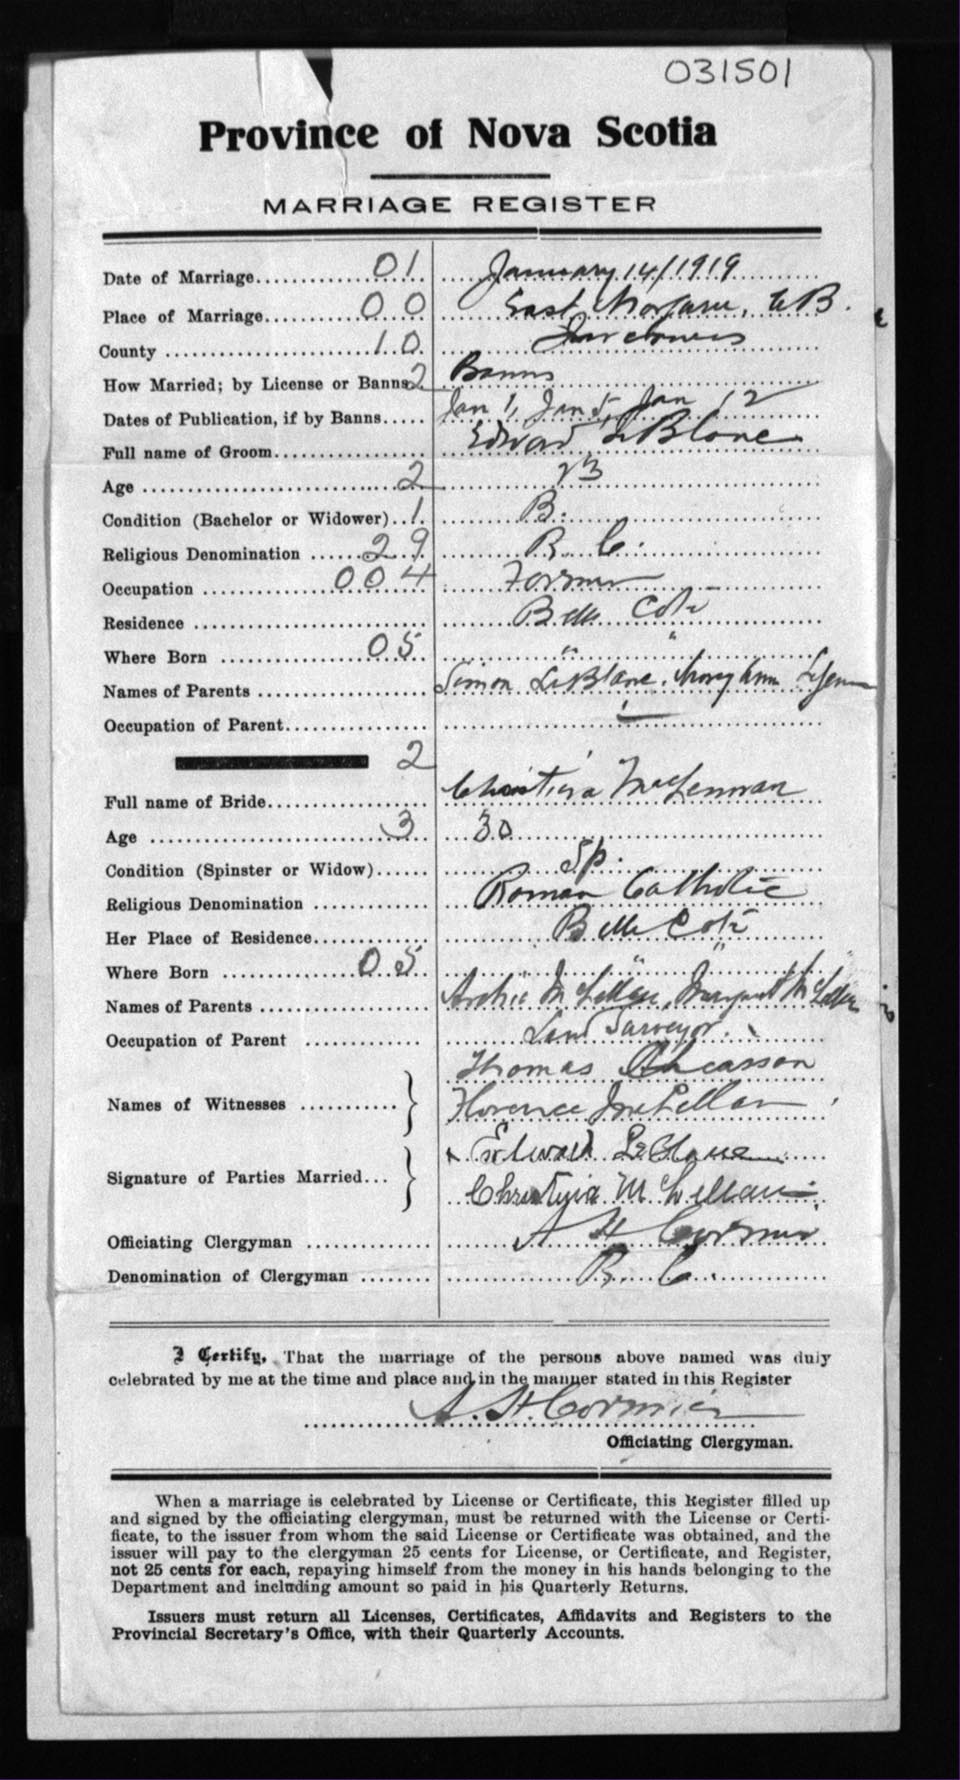 031501
Province of Nova Scotia
MARRIAGE REGISTER
Date of Marriage 01 January 14/1919
Place of Marriage 00 East Margaree, C.B.
County 10 Inverness
How Married; by License or Banns 2 Banns
Dates of Publication, if by Banns Jan 1, Jan 5, Jan 12
Full name of Groom Edward LeBlanc
Age 2 23
Condition (Bachelor or Widower) 1 B.
Religious Denomination 29 R. C.
Occupation 004 Farmer
Residence Belle Cote
Where Born 05 " "
Names of Parents Simon LeBlanc, Mary Ann
Occupation of Parent —
2
Full name of Bride MacLennan
Age 3 30
Condition (Spinster or Widow) Sp.
Religious Denomination Roman Catholic
Her Place of Residence Belle Cote
Where Born 05 " "
Names of Parents Archie McLellan, Margaret McLellan
Occupation of Parent Land Surveyor
Thomas
Names of Witnesses } Florence McLellan
x Edward LeBlanc
Signature of Parties Married } McLellan
Officiating Clergyman A H Cormier
Denomination of Clergyman R. C.
I Certify, That the marriage of the persons above named was duly
celebrated by me at the time and place and in the manner stated in this Register
A. H. Cormier
Officiating Clergyman.
When a marriage is celebrated by License or Certificate, this Register filled up
and signed by the officiating clergyman, must be returned with the License or Certi-
ficate, to the issuer from whom the said License or Certificate was obtained, and the
issuer will pay to the clergyman 25 cents for License, or Certificate, and Register,
not 25 cents for each, repaying himself from the money in his hands belonging to the
Department and including amount so paid in his Quarterly Returns.
Issuers must return all Licenses, Certificates, Affidavits and Registers to the
Provincial Secretary's Office, with their Quarterly Accounts.